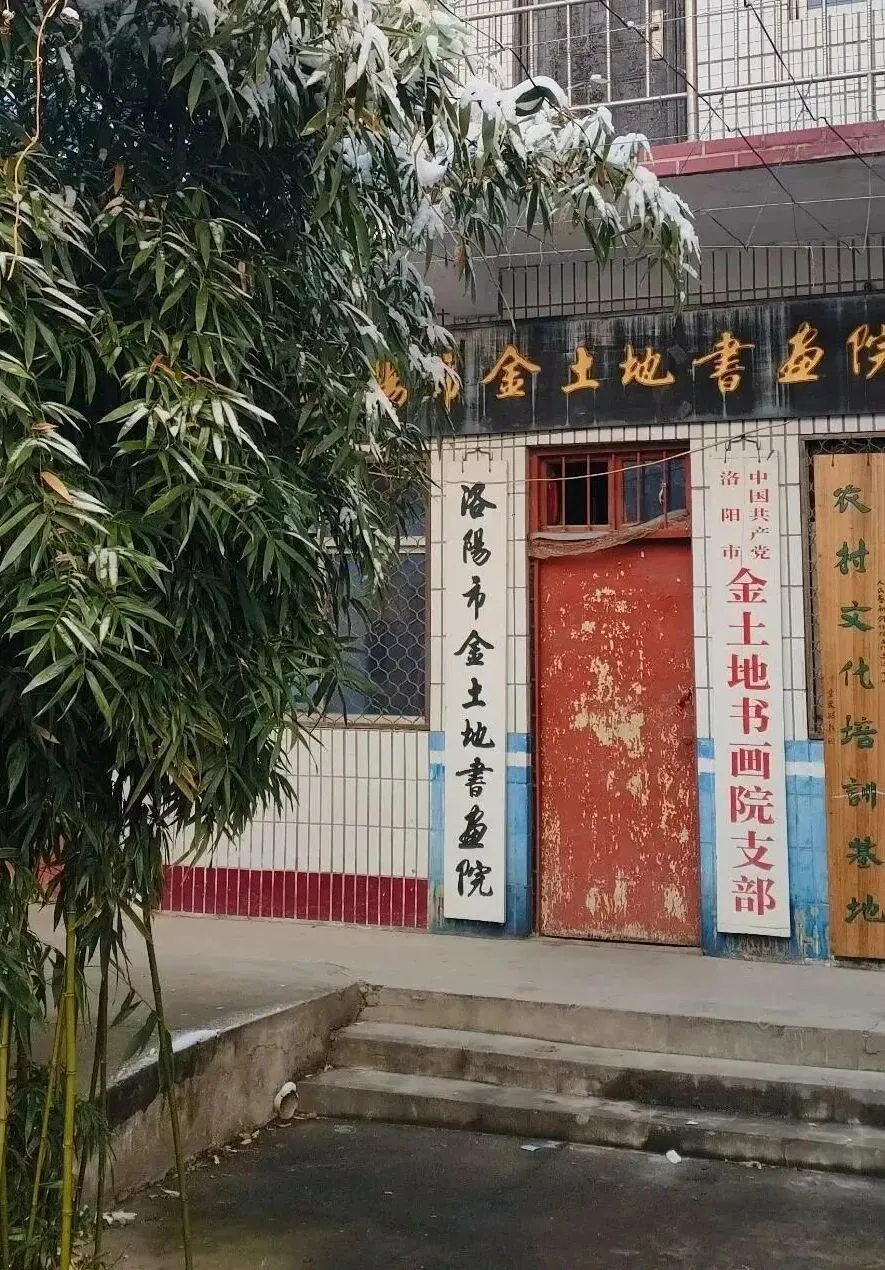 陽市金土地書畫院
洛陽市金土地書畫院
中国共产党
洛阳市
金土地书画院支部
农村文化培訓基地